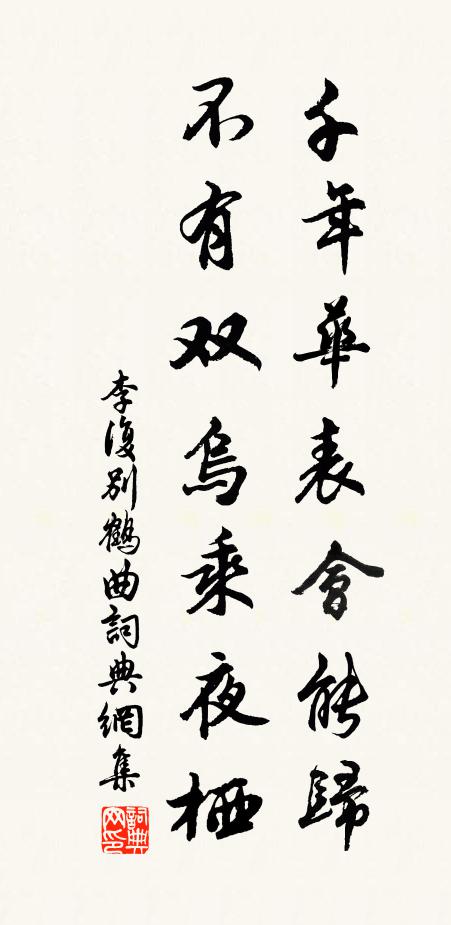 千年華表會能歸
不有双烏乘夜栖
李復别鶴曲詞典網集
詞典
网印